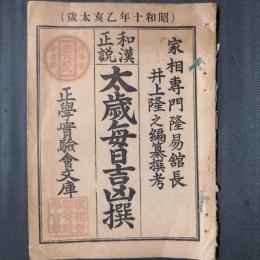 (昭和十年乙亥太歳)
家相專門隆易舘長
井上隆之編纂撰考
和漢
正説
太歳每日吉凶撰
正學實驗會文庫